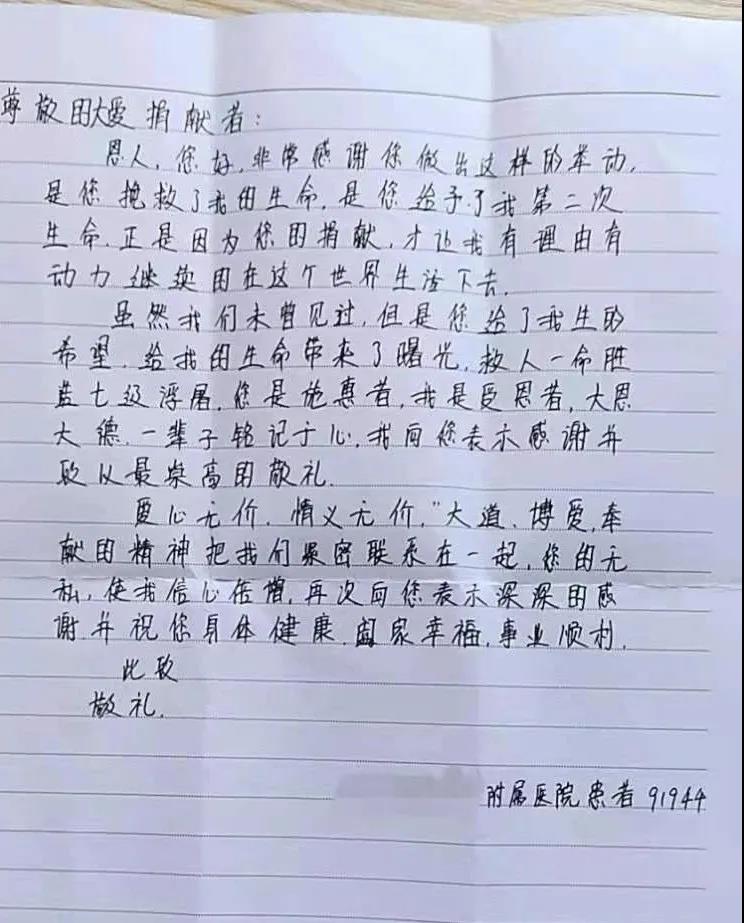 尊敬的大爱捐献者：
恩人，您好，非常感谢您做出这样的举动，
是您挽救了我的生命，是您给予了我第二次
生命，正是因为您的捐献，才让我有理由有
动力继续的在这个世界生活下去。
虽然我们未曾见过，但是您给了我生的
希望，给我的生命带来了曙光，救人一命胜
造七级浮屠，您是施惠者，我是受恩者，大恩
大德，一辈子铭记于心，我向您表示感谢并
致以最崇高的敬礼。
爱心无价，情义无价，"大道、博爱、奉
献的精神把我们紧密联系在一起，您的无
私，使我信心倍增，再次向您表示深深的感
谢并祝您身体健康，阖家幸福，事业顺利。
此致
敬礼。
附属医院患者 91944